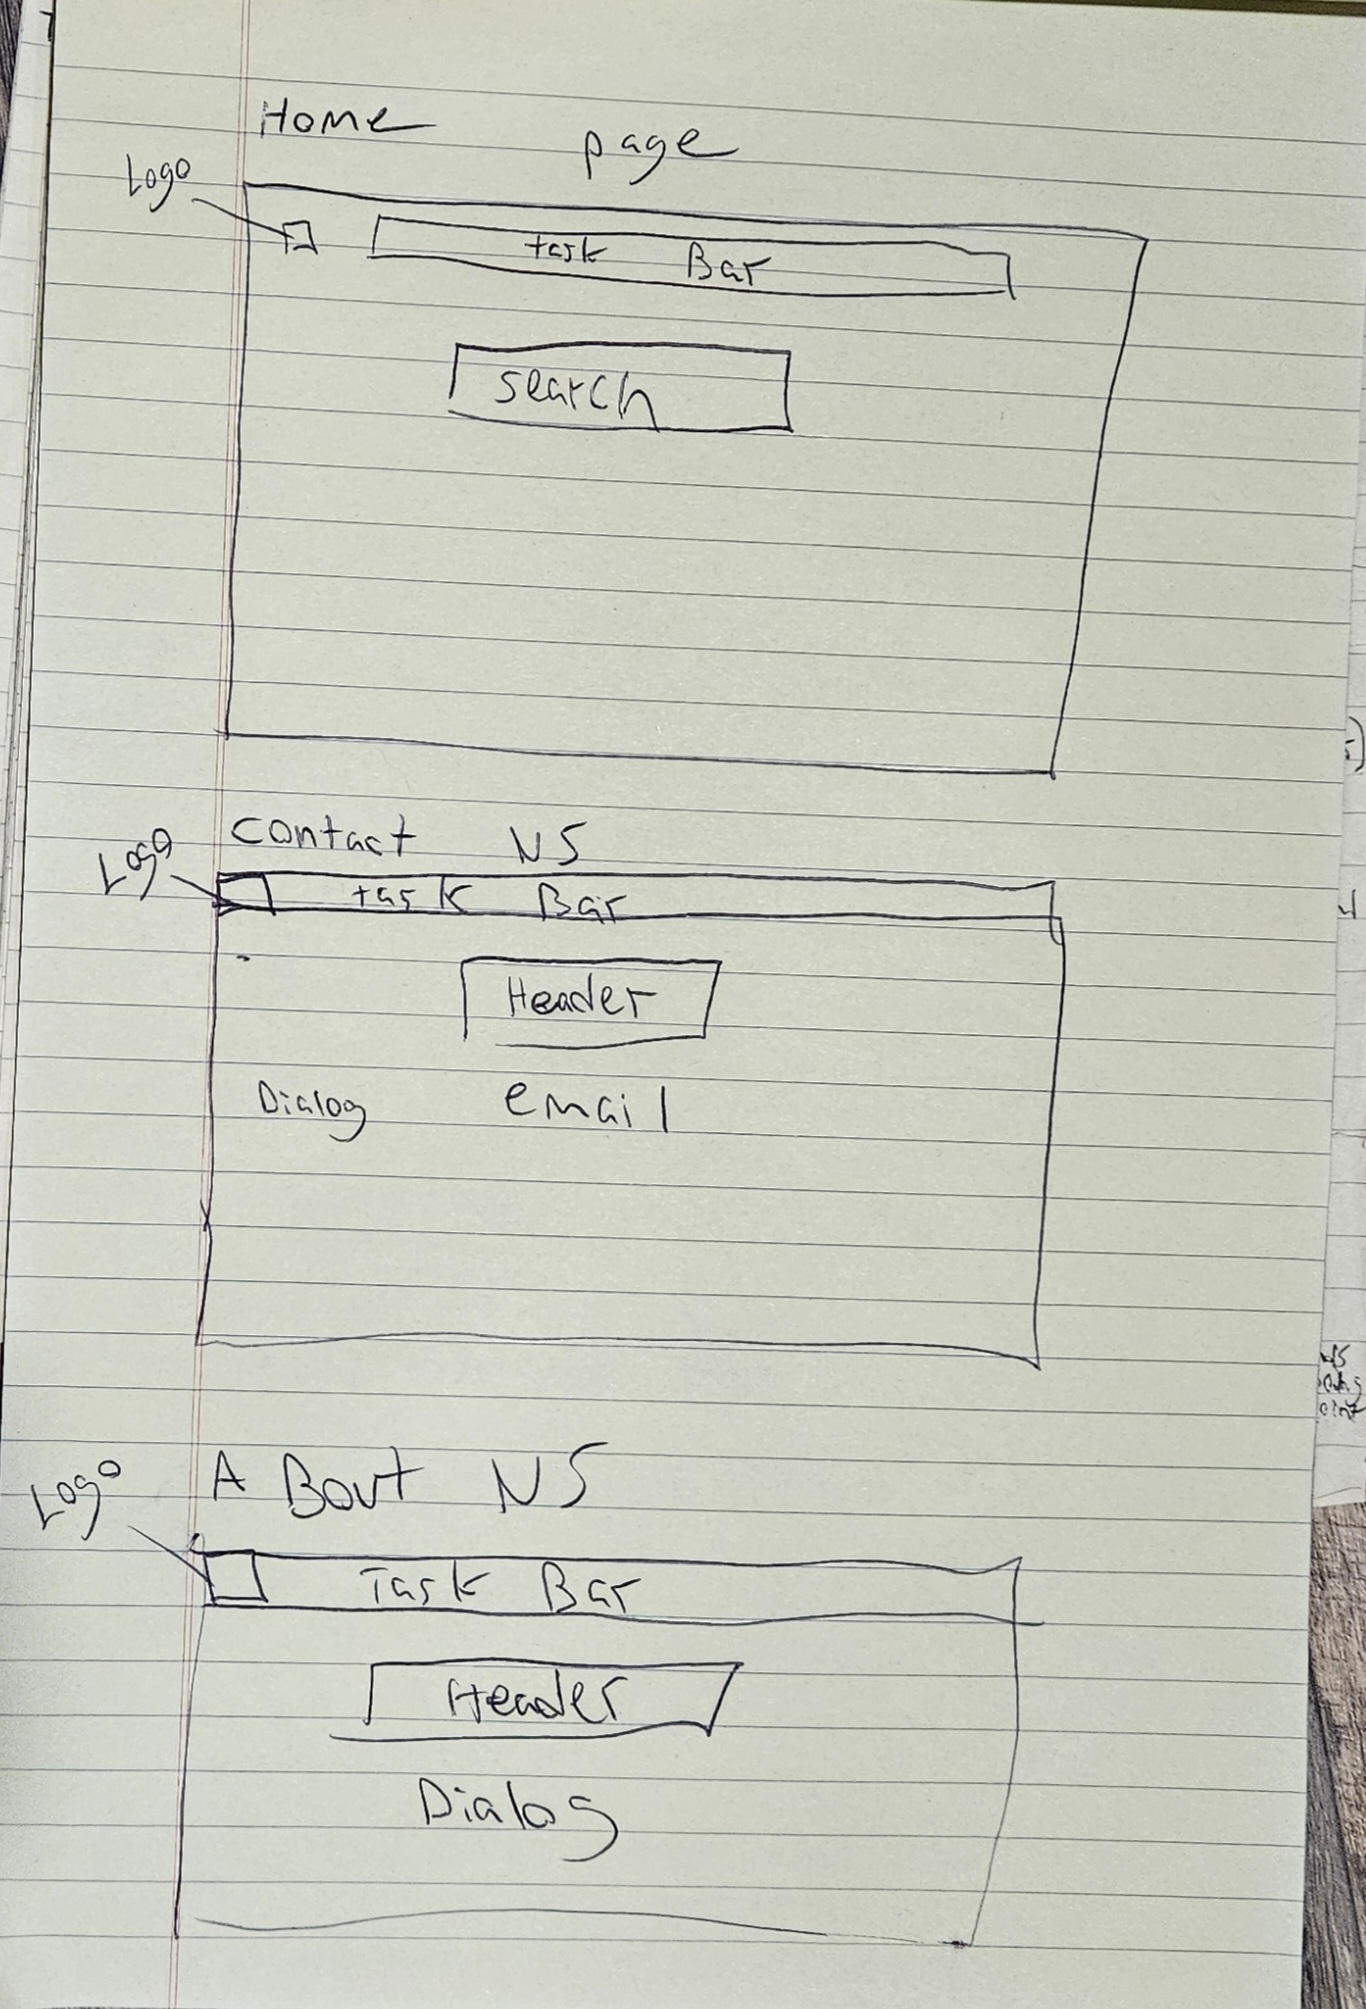 Home page
Logo
task Bar
search
contact US
Logo
task Bar
Header
Dialog email
A Bout US
Logo
Task Bar
Header
Dialog